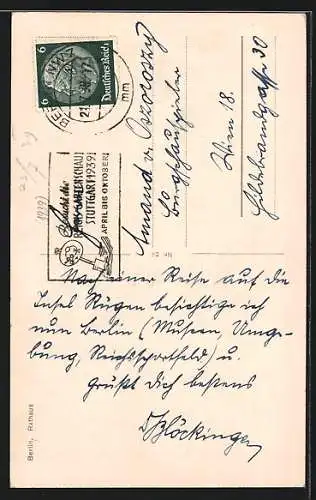 6 6
Deutsches Reich
Besucht die
REICHSGARTENSCHAU
STUTTGART 1939
APRIL BIS OKTOBER
(1939)
Amand v. Ozoroczy
Burgschauspieler
Wien 18.
Hildebrandgasse 30
Nach einer Reise auf die
Insel Rügen besichtige ich
nun Berlin (Museen, Umge-
bung, Reichssportfeld) u.
grüßt Dich bestens
Blöckinger
Berlin, Rathaus